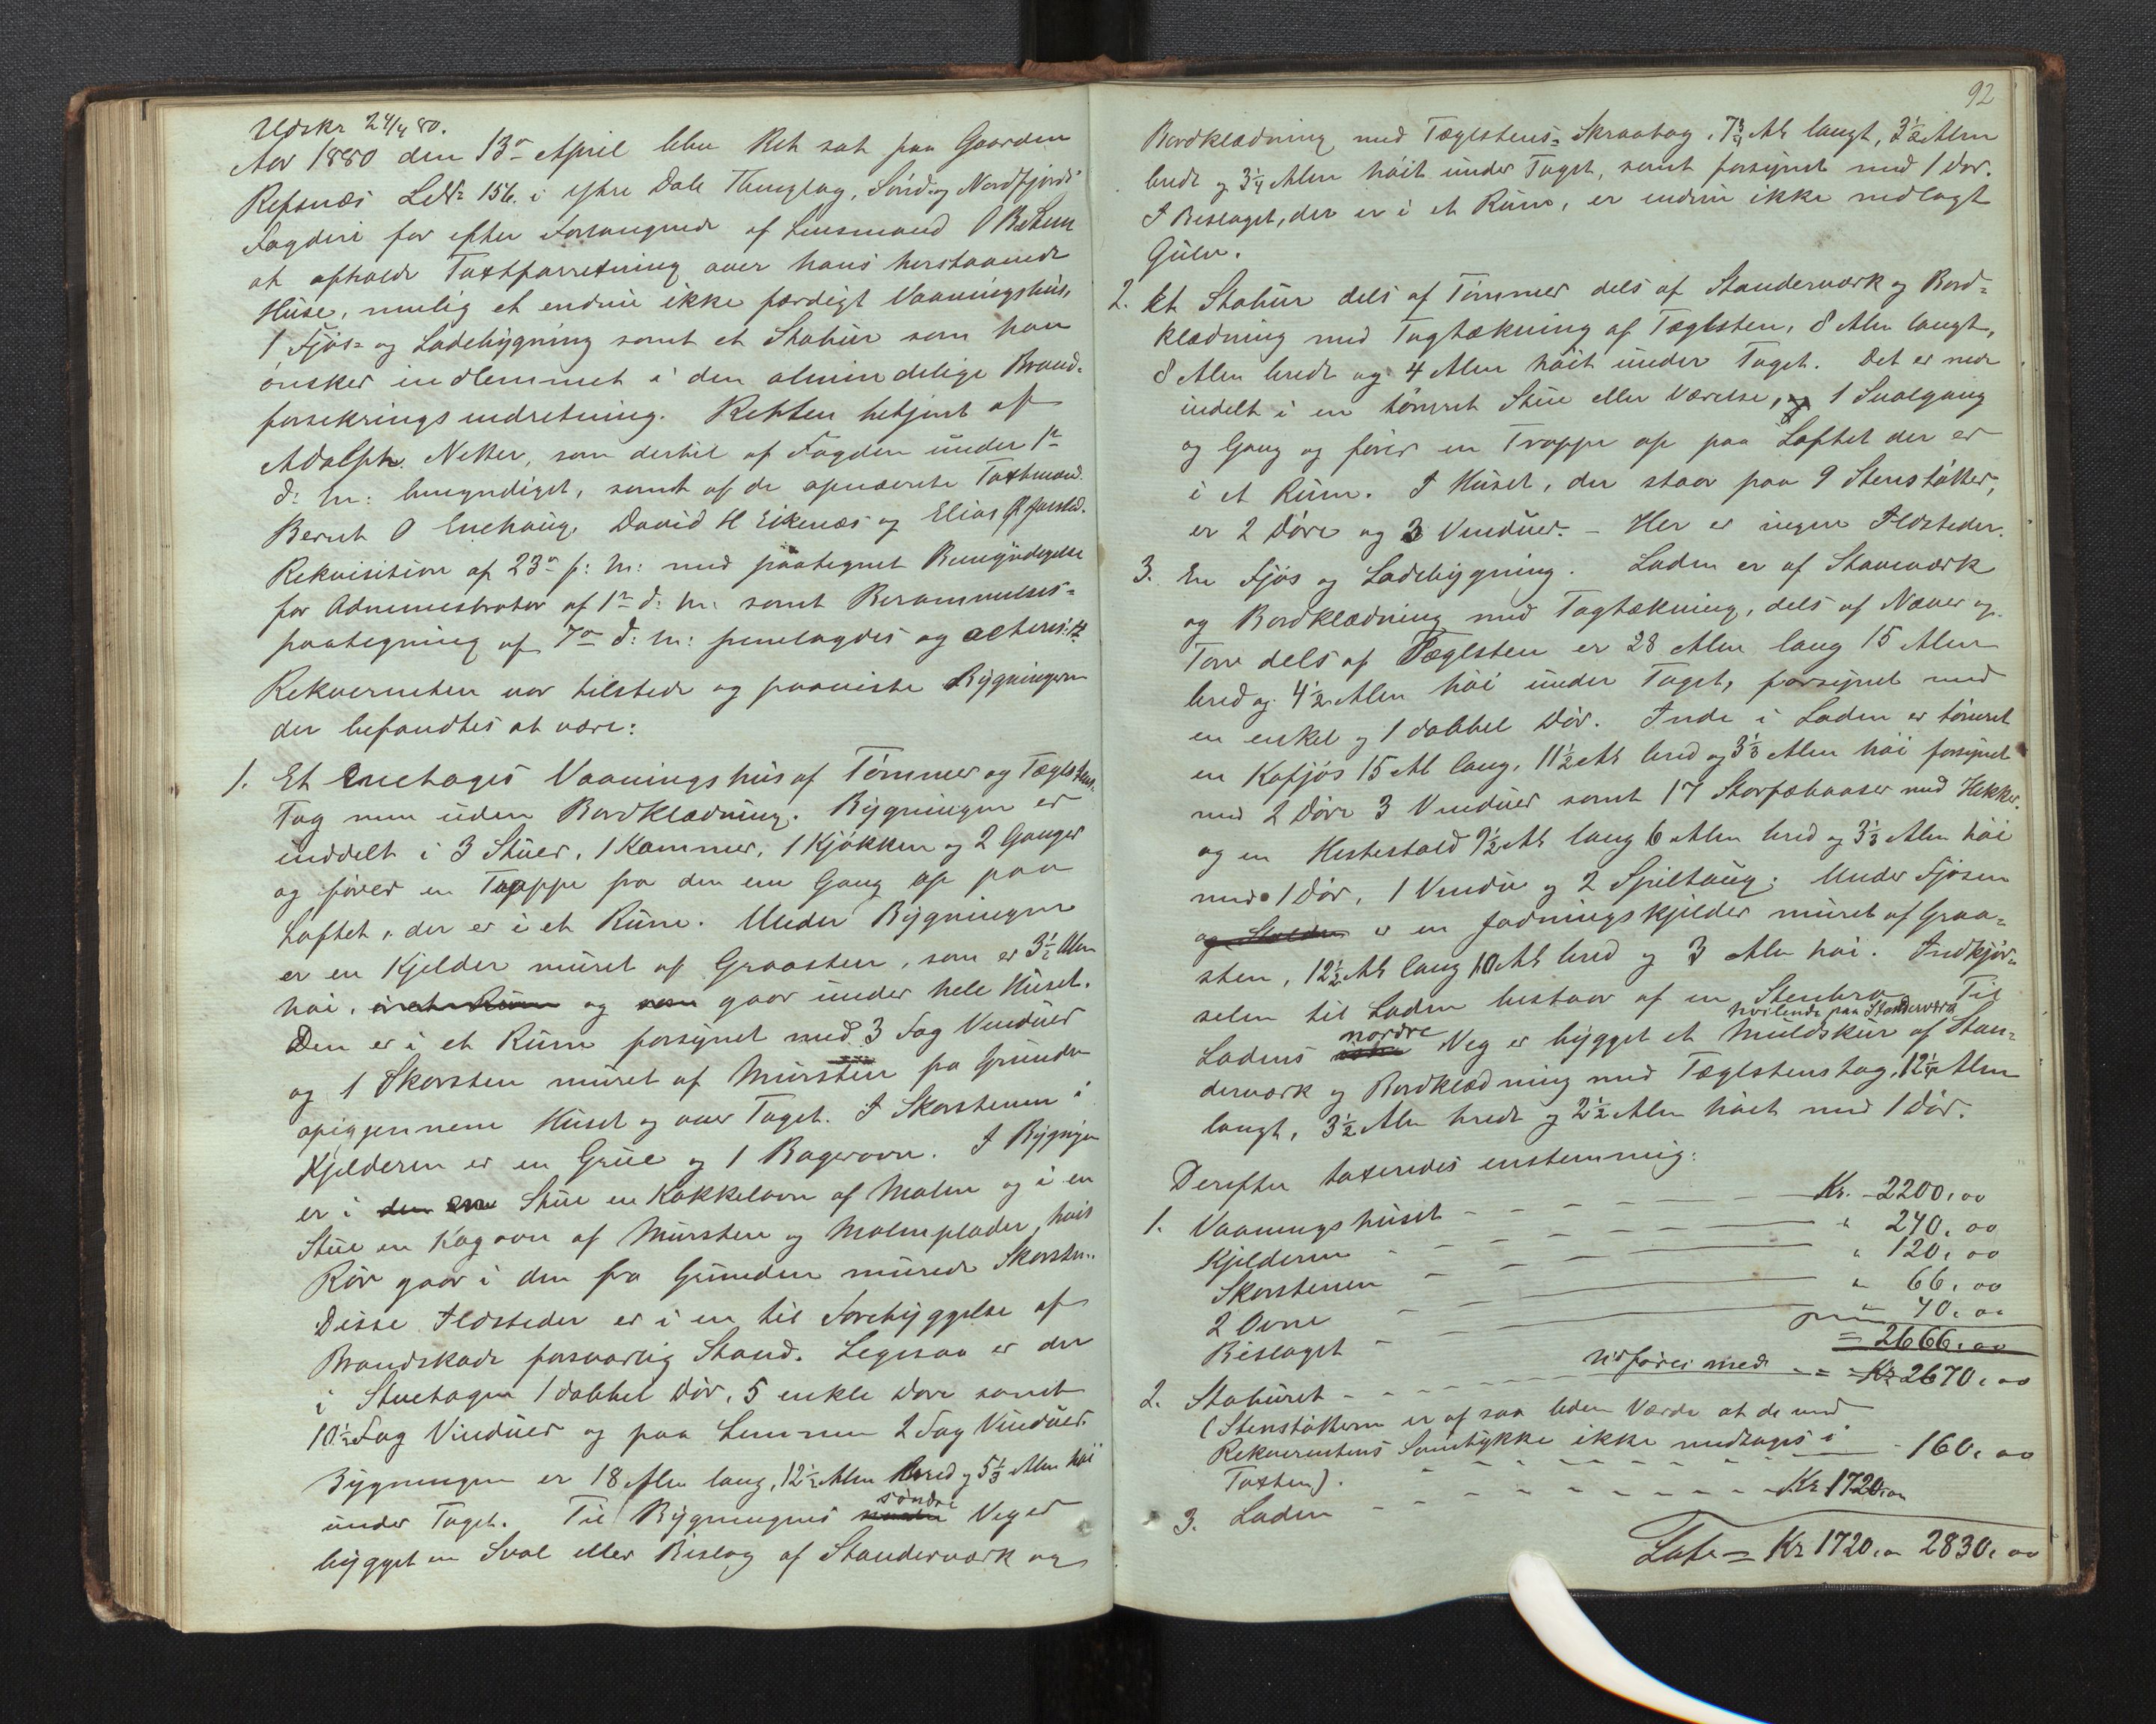 Udskr 24/4 80.
Aar 1880 den 13de April blev Ret sat paa Gaarden
Refsnæs LNr 156. i Ytre Dale Thinglag, Sönd og Nordfjords
Fogderi for efter Forlangende af Lensmand
at afholde Taxtforretning over hans herstaaende
Huse, nemlig et endnu ikke færdigt Vaaningshus,
1 Fjös- og Ladebygning samt et Stabur som han
önsker indlemmet i den almindelige Brand-
forsikringsindretning. Retten betjent af
Adolph Netter, som dertil af Fogden under 1ste
d: m: bemyndiget, samt af de opnævnte Taxtmænd
Bernt O Enehaug, David H Eikenæs og Elias
Rekvisition af 23de f: m: med paategnet Bemyndigelse
for Administrator af 1ste d: m: samt Berammelses-
paategning af 7de d: m: fremlagdes og acteres:
Rekvirenten var tilstede og paaviste Bygningerne
der befandtes at være:
1. Et Enetages Vaaningshus af Tömmer og Tæglstens-
Tag men uden Bordklædning. Bygningen er
inddelt i 3 Stuer, 1 Kammer, 1 Kjökken og 2 Ganger
og förer en Trappe fra den ene Gang op paa
Loftet, der er i et Rum. Under Bygningen
er en Kjelder muret af Graasten, som er 3½ Alen
höi, i et Rum og som gaar under hele Huset.
Den er i et Rum forsynet med 3 Fag Vinduer
og 1 Skorsten muret af Mursten fra Grunden
opigjennem Huset og over Taget. I Skorstenen i
Kjelderen er en Grue og 1 Bagerovn. I Bygnigen
er i den ene Stue en Kakkelovn af Malm og i en
Stue en Kogovn af Mursten og Malmplader, hvis
Rör gaar i den fra Grunden murede Skorsten.
Disse Ildsteder er i en til Forebyggelse af
Brandskade forsvarlig Stand. Legesaa er der
i Stuetagen 1 dobbel Dör, 5 enkle Döre samt
10½ Fag Vinduer og paa Lemmen 2 Fag Vinduer.
Bygningen er 18 Alen lang, 12½ Alen bred og 5⅓ Alen höi
söndre
under Taget. Til Bygningens Væg er
bygget en Sval eller Bislag af Standerværk og
92
Bordklædning med Tæglstens- Skraatag, 7¾ Al: langt, 3½ Alen
bredt og 3¼ Alen höit under Taget, samt forsynet med 1 Dör.
I Bislaget, der er i et Rum, er endnu ikke nedlagt
Gulv.
2. Et Stabur dels af Tömmer dels af Standerværk og Bord-
klædning med Tagtækning af Tæglsten, 8 Alen langt,
8 Alen bredt og 4 Alen höit under Taget. Det er nede
indelt i en tömret Stue eller Værelse, og 1 Svalgang
og Gang og förer en Trappe op paa Loftet der er
i et Rum. I Huset, der staar paa 9 Stenstötter,
er 2 Döre og 3 Vinduer. – Her er ingen Ildsteder.
3. En Fjös og Ladebygning. Laden er af Staveværk
og Bordklædning med Tagtækning, dels af Næver og
Torv dels af Tæglsten er 28 Alen lang 15 Alen
bred og 4½ Alen höi under Taget, forsynet med
en enkel og 1 dobbel Dör. Inde i Laden er tömret
en Kofjös 15 Al lang, 11½ Al: bred og 3⅓ Alen höi forsynet
med 2 Döre 3 Vinduer samt 17 Storfæbaaser med Hekker.
og en Hestestald 9½ Al: lang 6 Alen bred og 3⅓ Alen höi
med 1 Dör, 1 Vindu og 2 Spiltaug. Under Fjösen
og Stalden er en Jødningskjelder muret af Graa-
sten, 12½ Al: lang 10 Al: bred og 3 Alen höi. Indkjör-
selen til Laden bestaar af en Stenbro Til
nordre hvilende paa Standerværk
Ladens Væg er bygget et Muldskur af Stan-
derværk og Bordklædning med Tæglstenstag, 12¼ Alen
langt, 3½ Alen bredt og 2½ Alen höit med 1 Dör.
Derefter taxeredes enstemmig:
1. Vaaningshuset - - - - Kr. 2200,00
Kjelderen - - - " 240,00
Skorstenen - - - " 120,00
2 Ovne - - - " 66,00
Bislaget - - - " 40,00
= 2666,00
udföres med - - = Kr 2670,00
2. Staburet - - - -
(Stenstötterne er af saa liden Værdi at de med
Rekvirentens Samtykke ikke medtages i
Taxten). - - - - 160,00
3. Laden - - - - Kr 1720,00
Late = Kr 1720,00 2830,00